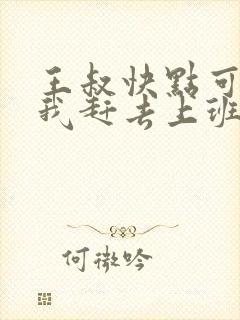 王叔快點可
我赶去上班
何微吟